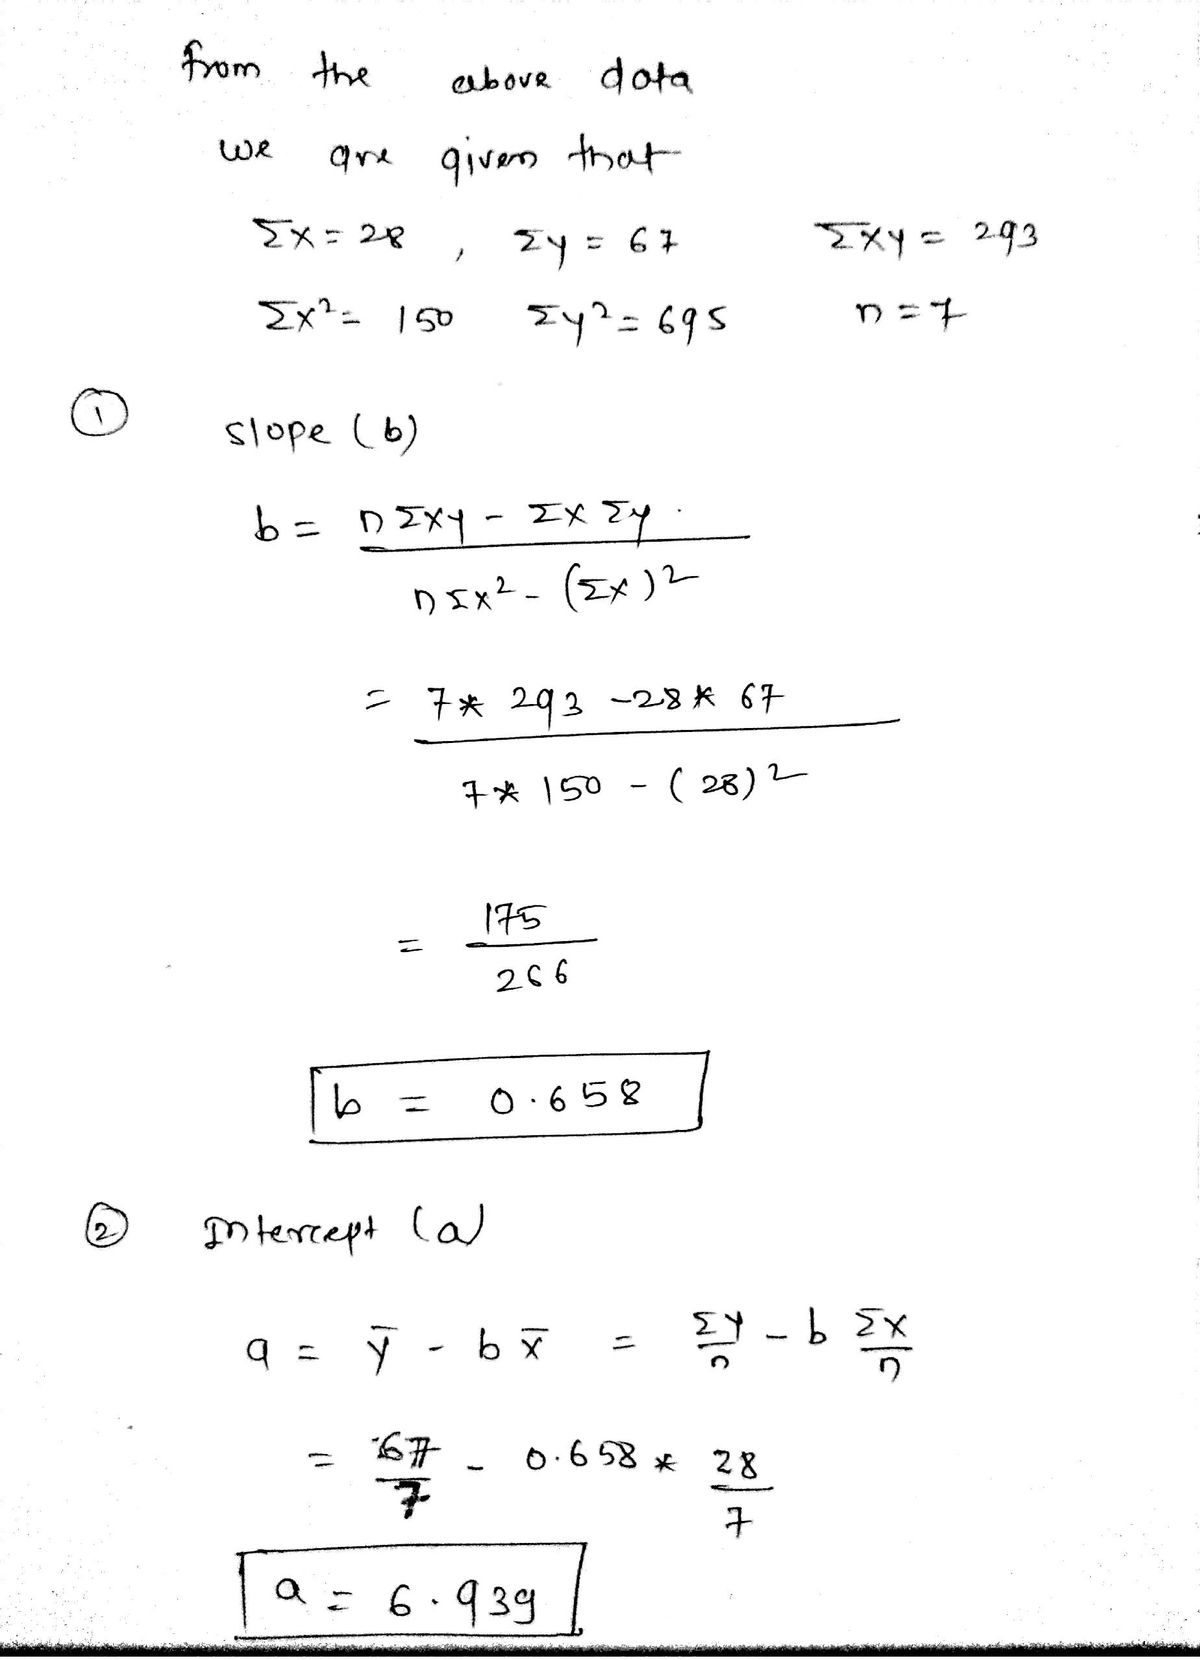 from the above data
we are given that
Σx = 28 , Σy = 67 Σxy = 293
Σx² = 150 Σy² = 695 n = 7
① slope (b)
b = nΣxy - Σx Σy
nΣx² - (Σx)²
= 7* 293 -28* 67
7* 150 - (28)²
= 175
266
b = 0.658
② Intercept (a)
a = ȳ - b x̄ = Σy/n - b Σx/n
= 67/7 - 0.658 * 28/7
a = 6.939